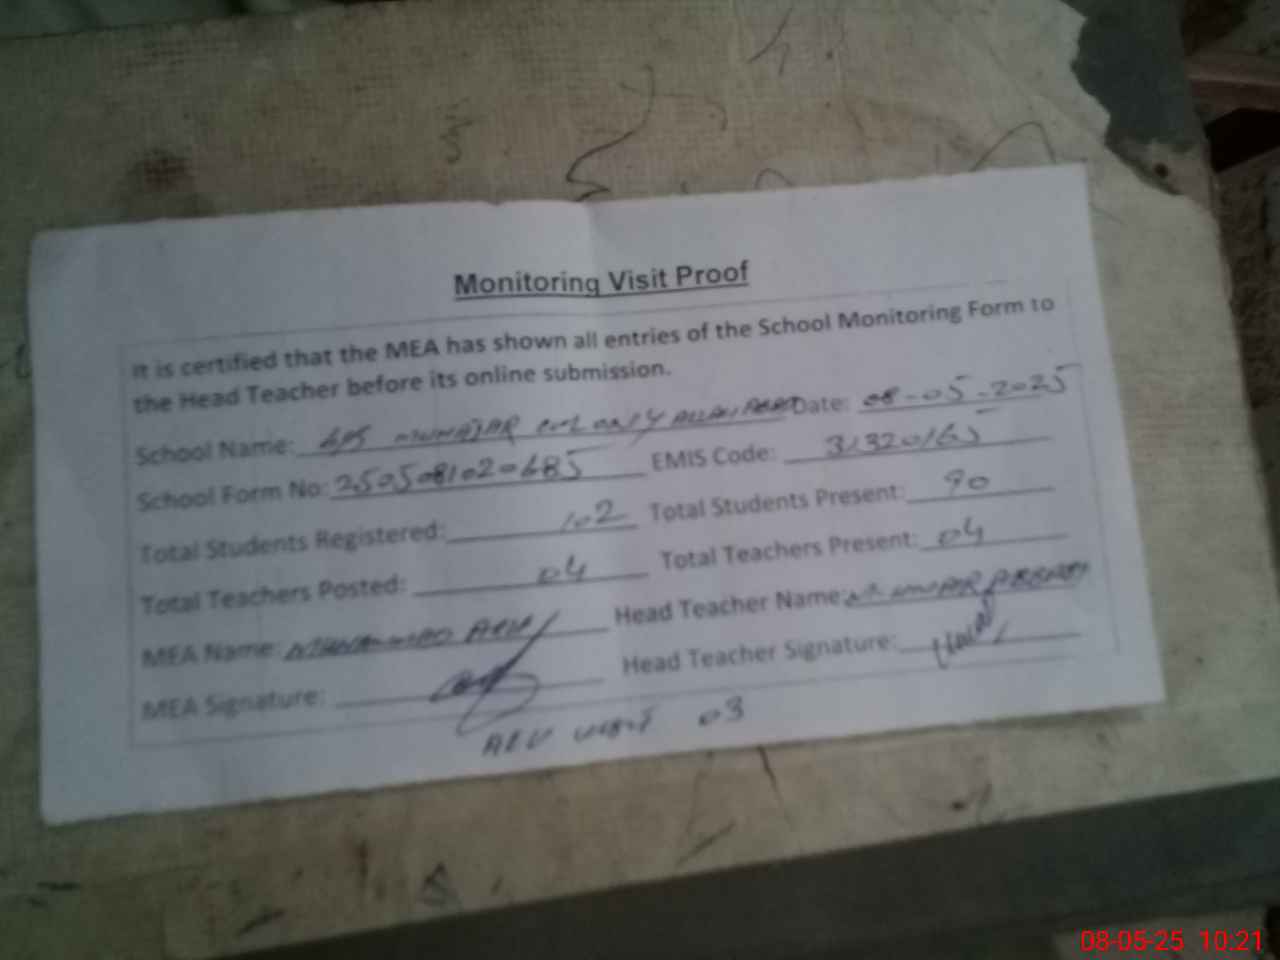 Monitoring Visit Proof
It is certified that the MEA has shown all entries of the School Monitoring Form to
the Head Teacher before its online submission.
School Name: GPS MUHAJAR COLONY ALLAH ABAD Date: 08-05-2025
School Form No: 2505081020685 EMIS Code: 31320165
Total Students Registered: 102 Total Students Present: 90
Total Teachers Posted: 04 Total Teachers Present: 04
MEA Name: MUHAMMAD Head Teacher Name:
MEA Signature: Head Teacher Signature:
VISIT 03
08-05-25 10:21